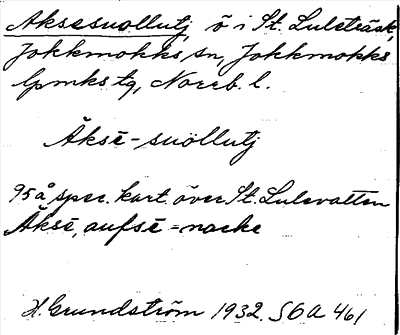 Aksesuollutj, ö i St. Luleträsk,
Jokkmokks sn, Jokkmokks
lpmks tg, Norrb. l.
Äksē-suöllutj
95 å spec. kart. över St. Lulevatten
Äksē, aufsē = nacke
H. Grundström 1932. SOA 461